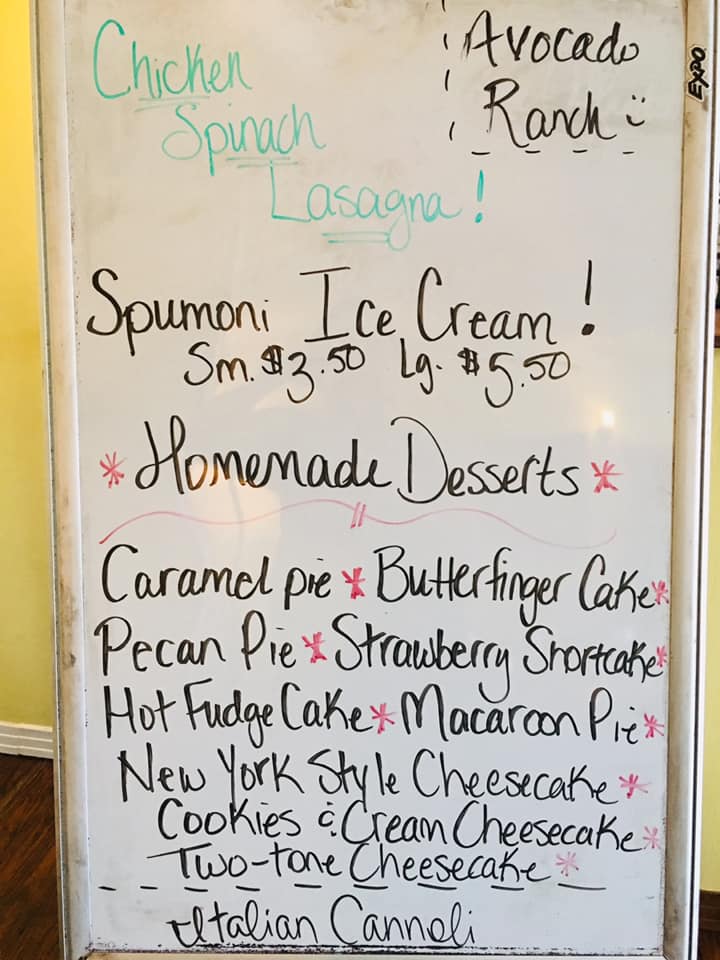 Chicken
Spinach
Lasagna!
Avocado
Ranch :)
EXPO
Spumoni Ice Cream!
Sm. $3.50 Lg. $5.50
* Homemade Desserts *
Caramel pie * Butterfinger Cake *
Pecan Pie * Strawberry Shortcake *
Hot Fudge Cake * Macaroon Pie *
New York Style Cheesecake *
Cookies & Cream Cheesecake *
Two-tone Cheesecake *
Italian Cannoli